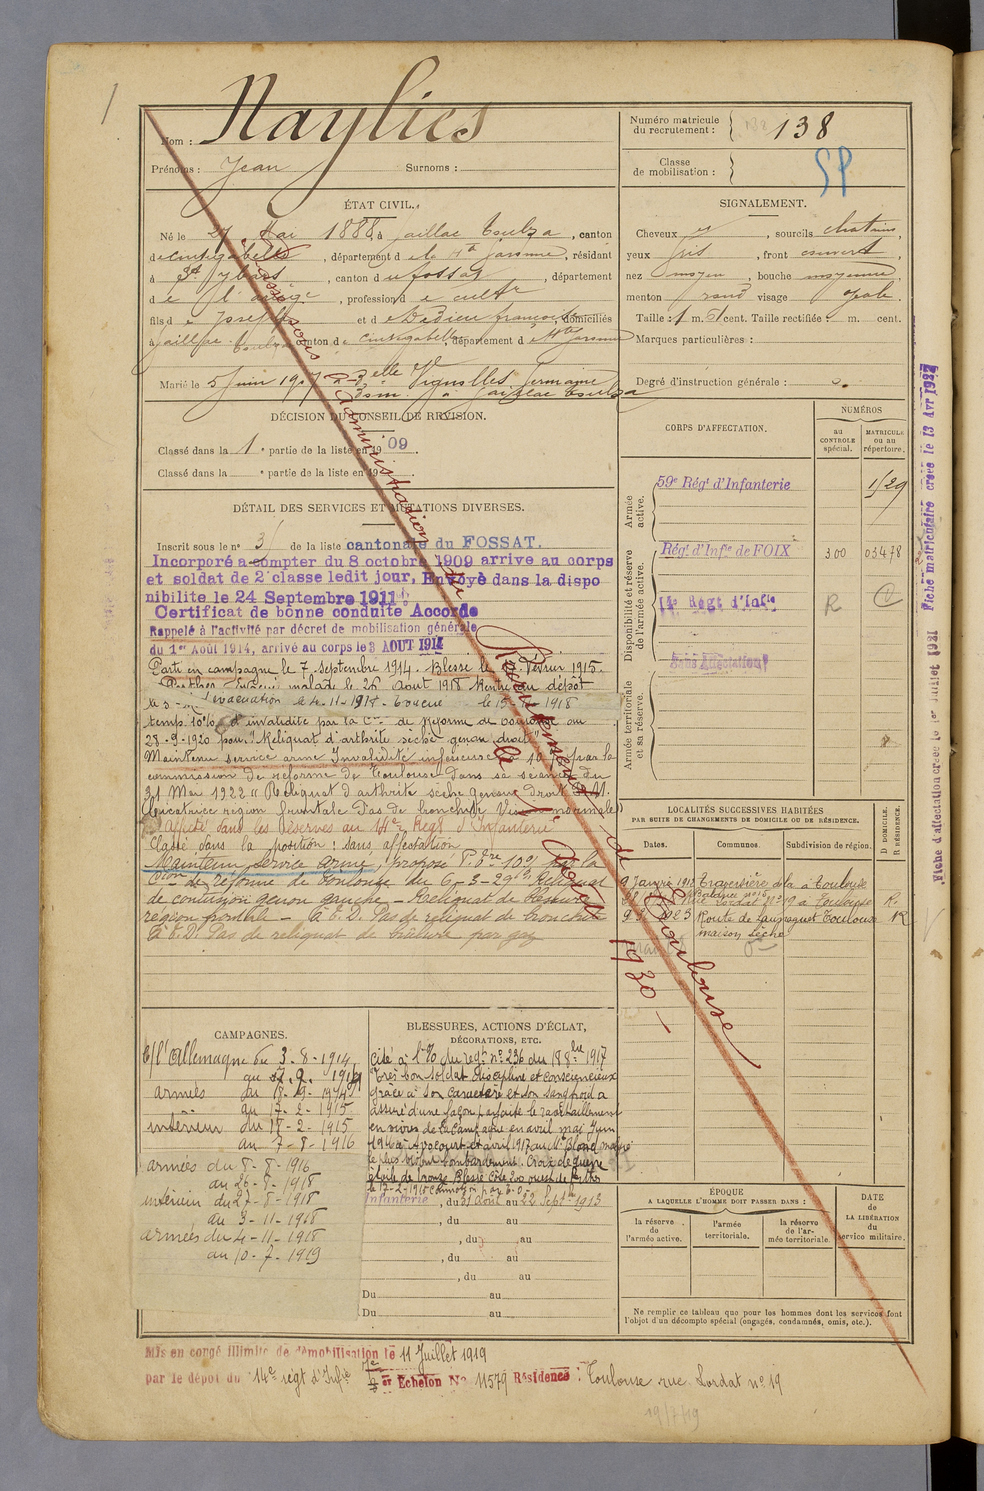 1
Nom : Naylies
Prénoms : Jean Surnoms :
Numéro matricule du recrutement : 138
Classe de mobilisation :
SP
ÉTAT CIVIL.
Né le 27 Mai 1888, à Gaillac Toulza, canton
de Cintegabelle, département de la Hte Garonne, résidant
à St Ybars, canton du Fossat, département
de l'Ariège, profession de cultr
fils de Joseph et de Dedieu françoise, domiciliés
à Gaillac Toulza canton de Cintegabelle, département de Hte Garonne
Marié le 5 Juin 1917 à Delle Vignolles Germaine
Dom. à Gaillac Toulza
SIGNALEMENT.
Cheveux , sourcils chatains,
yeux gris, front couvert,
nez moyen, bouche moyenne,
menton rond visage ovale.
Taille : 1 m. cent. Taille rectifiée : m. cent.
Marques particulières :
Degré d'instruction générale : 3.
DÉCISION DU CONSEIL DE RÉVISION.
Classé dans la 1e partie de la liste en 1909.
Classé dans la e partie de la liste en 19
DÉTAIL DES SERVICES ET MUTATIONS DIVERSES.
Inscrit sous le n° 3 de la liste cantonale du FOSSAT.
Incorporé a compter du 8 octobre 1909 arrive au corps
et soldat de 2e classe ledit jour, Envoyé dans la dispo
nibilite le 24 Septembre 1911
Certificat de bonne conduite Accordé
Rappelé à l'activité par décret de mobilisation générale
du 1er Août 1914, arrivé au corps le 3 AOUT 1914
Parti en campagne le 7 septembre 1914. Blessé le Février 1915.
malade le 26 Aout 1918 Rentré au dépôt
évacuation le 4-11-1918
temp. 10% d'invalidité par la Con de Réforme de Toulouse du
28-9-1920 pour "Reliquat d'arthrite sèche genou droit"
Maintenu service armé Invalidité inférieure à 10 % par la
commission de réforme de Toulouse dans sa séance du
31 Mai 1922 "Reliquat d'arthrite sèche genou droit
Cicatrice région frontale Pas de bronchite Vision normale"
Affecté dans les Réserves au 14e Régt d'Infanterie
Classé dans la position : sans affectation
Maintenu service armé, proposé P. 10% par la
Con de réforme de Toulouse du 6-3-29 Reliquat
de contusion genou gauche - Reliquat de blessure
région frontale - Pas de reliquat de bronchite
Pas de reliquat de brûlure par gaz
Passé sous l'administration du Recrutement de Toulouse
le 1er Août 1930 -
CORPS D'AFFECTATION.
NUMÉROS
au CONTROLE spécial.
MATRICULE ou au répertoire.
Armée active.
59e Régt d'Infanterie 1/29
Disponibilité et réserve de l'armée active.
Régt d'Infie de FOIX 300 03478
14e Régt d'Infie R
Sans Affectation
Armée territoriale et sa réserve.
LOCALITÉS SUCCESSIVES HABITÉES
PAR SUITE DE CHANGEMENTS DE DOMICILE OU DE RÉSIDENCE.
Dates. Communes. Subdivision de région.
D. DOMICILE. R. RÉSIDENCE.
9 Janvier 1912 Traversière de la à Toulouse
Rue Lordat N° 19 à Toulouse R.
1923 Route de Launaguet Toulouse R
maison Sèche
CAMPAGNES.
C/ l'Allemagne du 3-8-1914
au
armées du
au 17-2-1915
intérieur du 18-2-1915
au 7-8-1916
armées du 8-8-1916
au 26-8-1918
intérieur du 27-8-1918
au 3-11-1918
armées du 4-11-1918
au 10-7-1919
BLESSURES, ACTIONS D'ÉCLAT,
DÉCORATIONS, ETC.
Cité à l'O/ du régt n° 236 du 18 1917
"Très bon soldat discipliné et consciencieux
grâce à son caractère et son sangfroid a
assuré d'une façon parfaite le ravitaillement
en vivres de la Compagnie en avril mai Juin
1916 à Avocourt et avril 1917 au Mt Blond malgré
le plus violent bombardement. Croix de guerre
étoile de bronze. Blessé Côte 200 ouest de Perthes
le 17-2-1915
Infanterie, du 31 Août au 22 Septbre 1913
, du au
, du au
, du au
, du au
Du au
Du au
ÉPOQUE
A LAQUELLE L'HOMME DOIT PASSER DANS :
la réserve de l'armée active.
l'armée territoriale.
la réserve de l'armée territoriale.
DATE de LA LIBÉRATION du service militaire.
Ne remplir ce tableau que pour les hommes dont les services font
l'objet d'un décompte spécial (engagés, condamnés, omis, etc.).
Mis en congé illimité de démobilisation le 11 Juillet 1919
par le dépôt du 14e régt d'Infie Echelon N° 11579 Résidence : Toulouse rue Lordat n° 19
19/7/19
Fiche d'affectation créée le 1er Juillet 1931 Fiche matriculaire créée le 13 Avr 1932